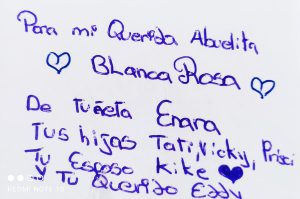 Para mi Querida Abuelita
Blanca Rosa
De tu nieta Enara
Tus hijas Tati, Vicky, Prisci
Tu Esposo Kike
Y Tu Querido Eddy
REDMI NOTE 10